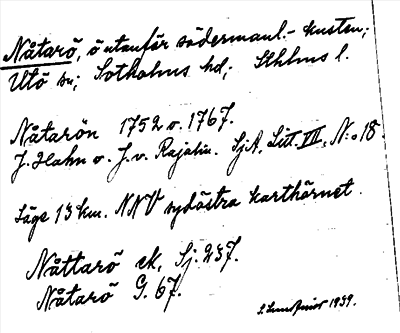 Nåtarö, ö utanför södermanl.- kusten;
Utö sn; Sotholms hd; Sthlms l.
Nåtarön 1752 o. 1767.
J. Hahn o. J. v. Rajalin. SjA, Litt. VII, N:o 18.
Läge 13 km. NNV sydöstra karthörnet.
Nåttarö ek, Sj. 237.
Nåtarö G. 67.
1939.